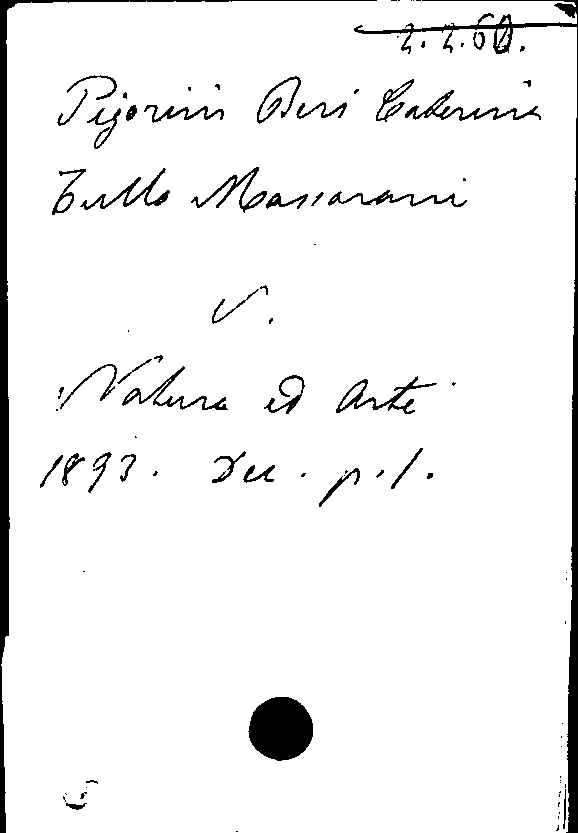 2.2.60.
Pigorini Beri Caterina
Tullo Massarani
V.
Natura ed Arte
1893. Dec. p.1.